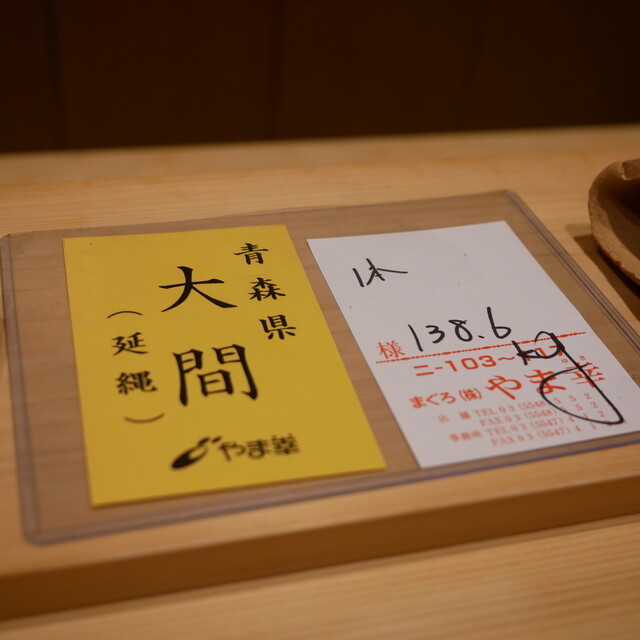 青森県
大間
（延縄）
やま幸
1本
138.6
kg
様
ニ-103~
まぐろ（株）やま幸
店舗 TEL 03 (5548)
FAX 03 (5548)
事務所 TEL 03 (5547)
FAX 03 (5547)